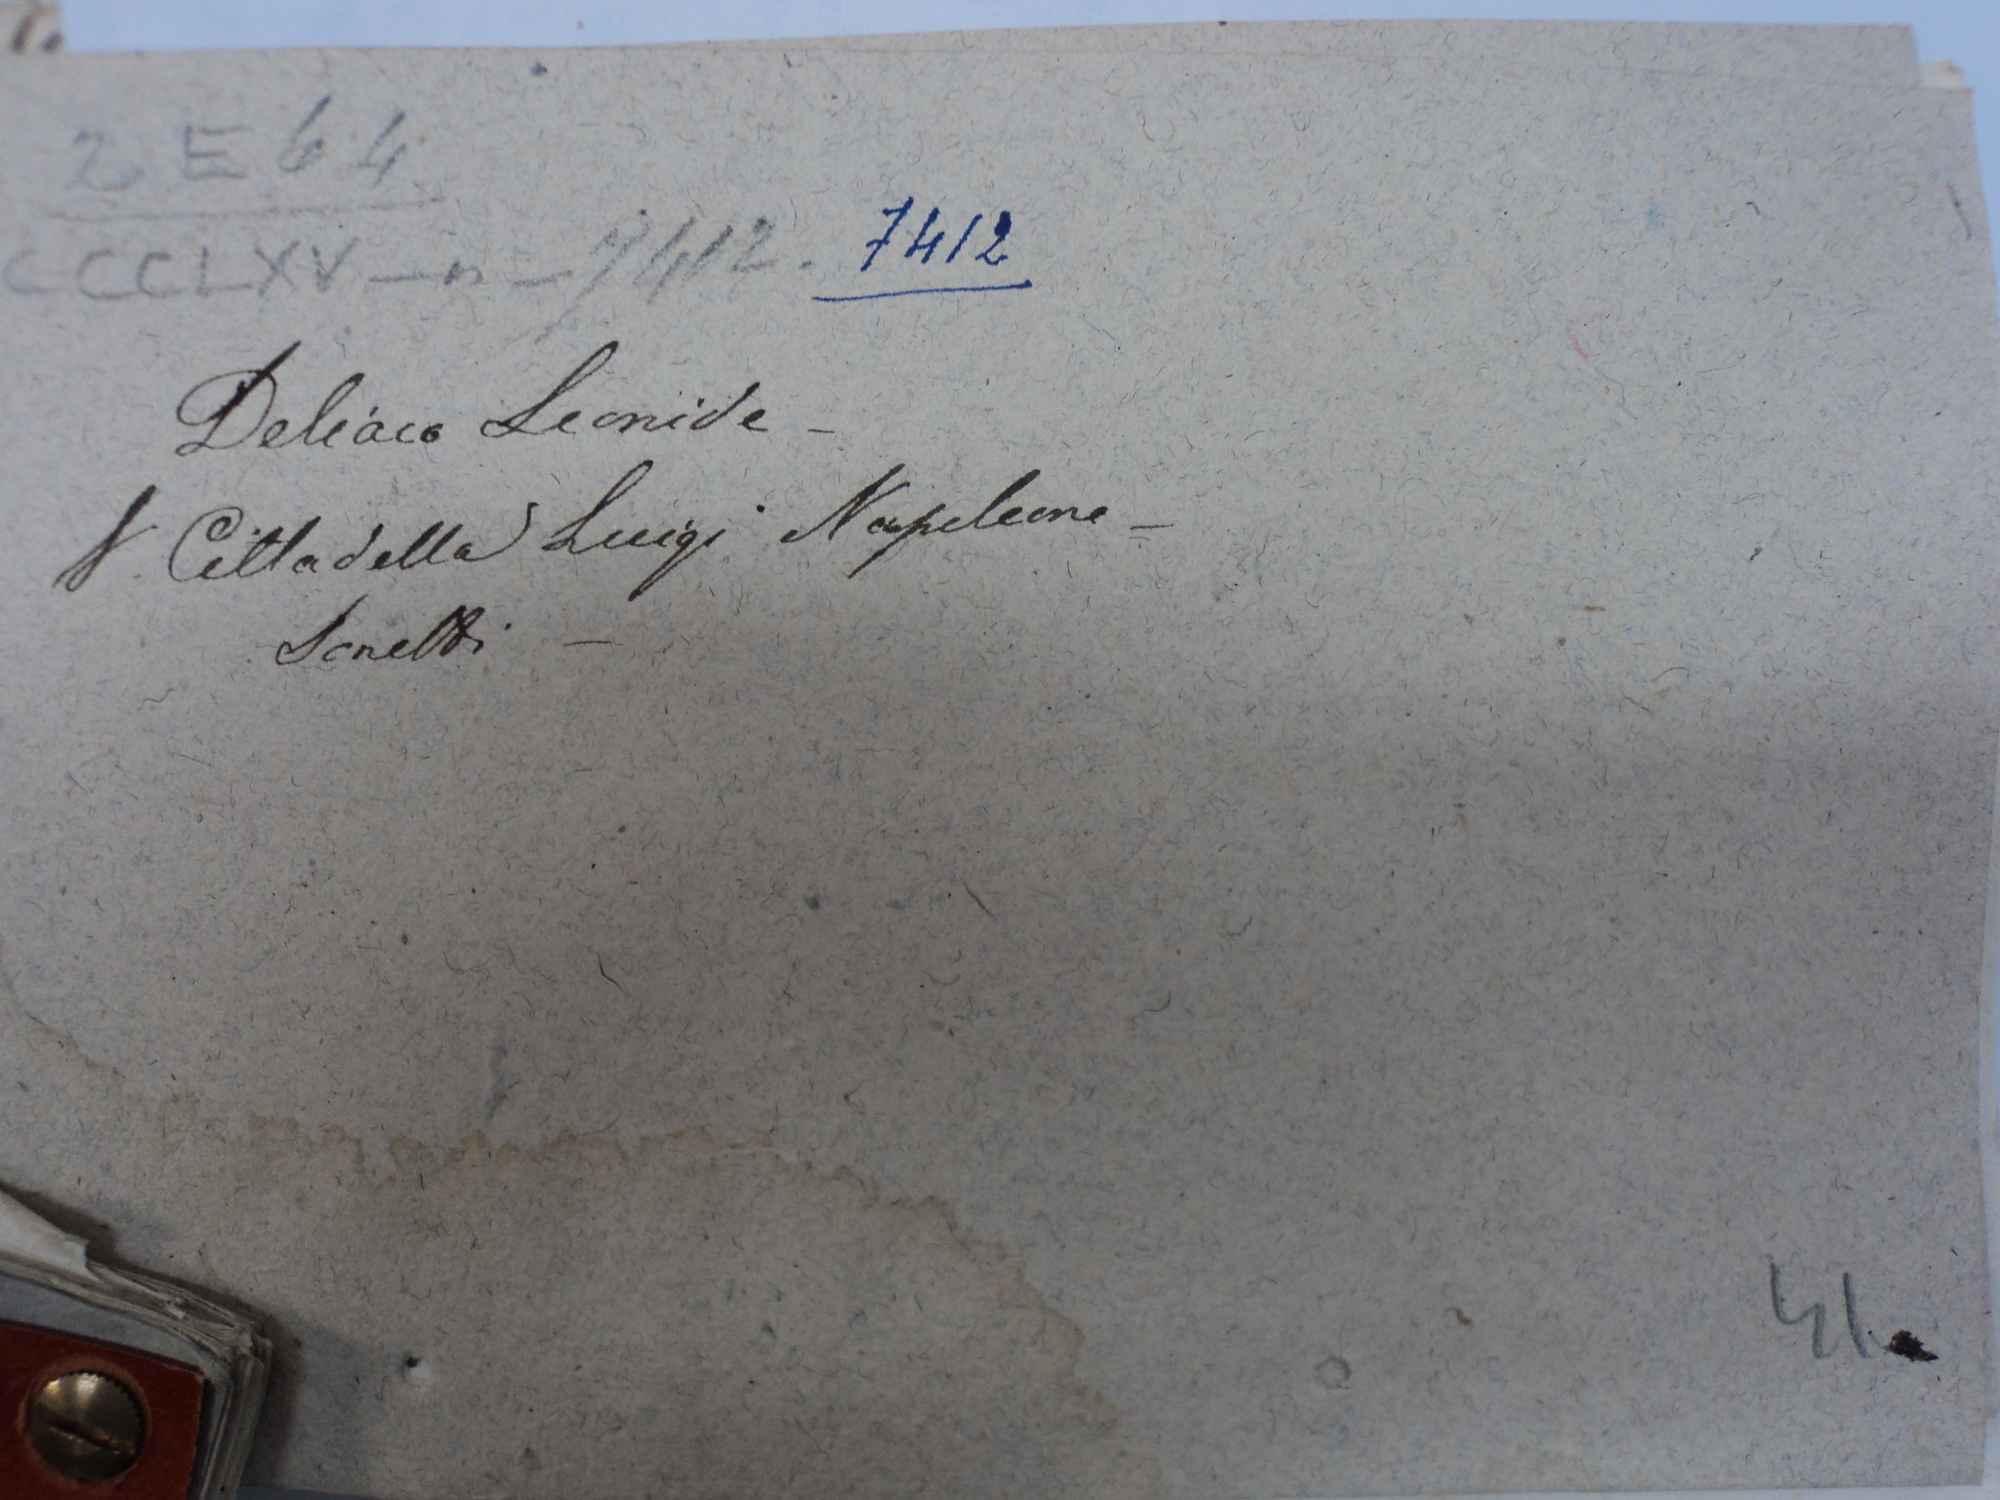 2 E 64
CCCLXV - n - 7412. 7412
Deliaco Leonide -
V. Cittadella Luigi Napoleone -
Sonetti -
41